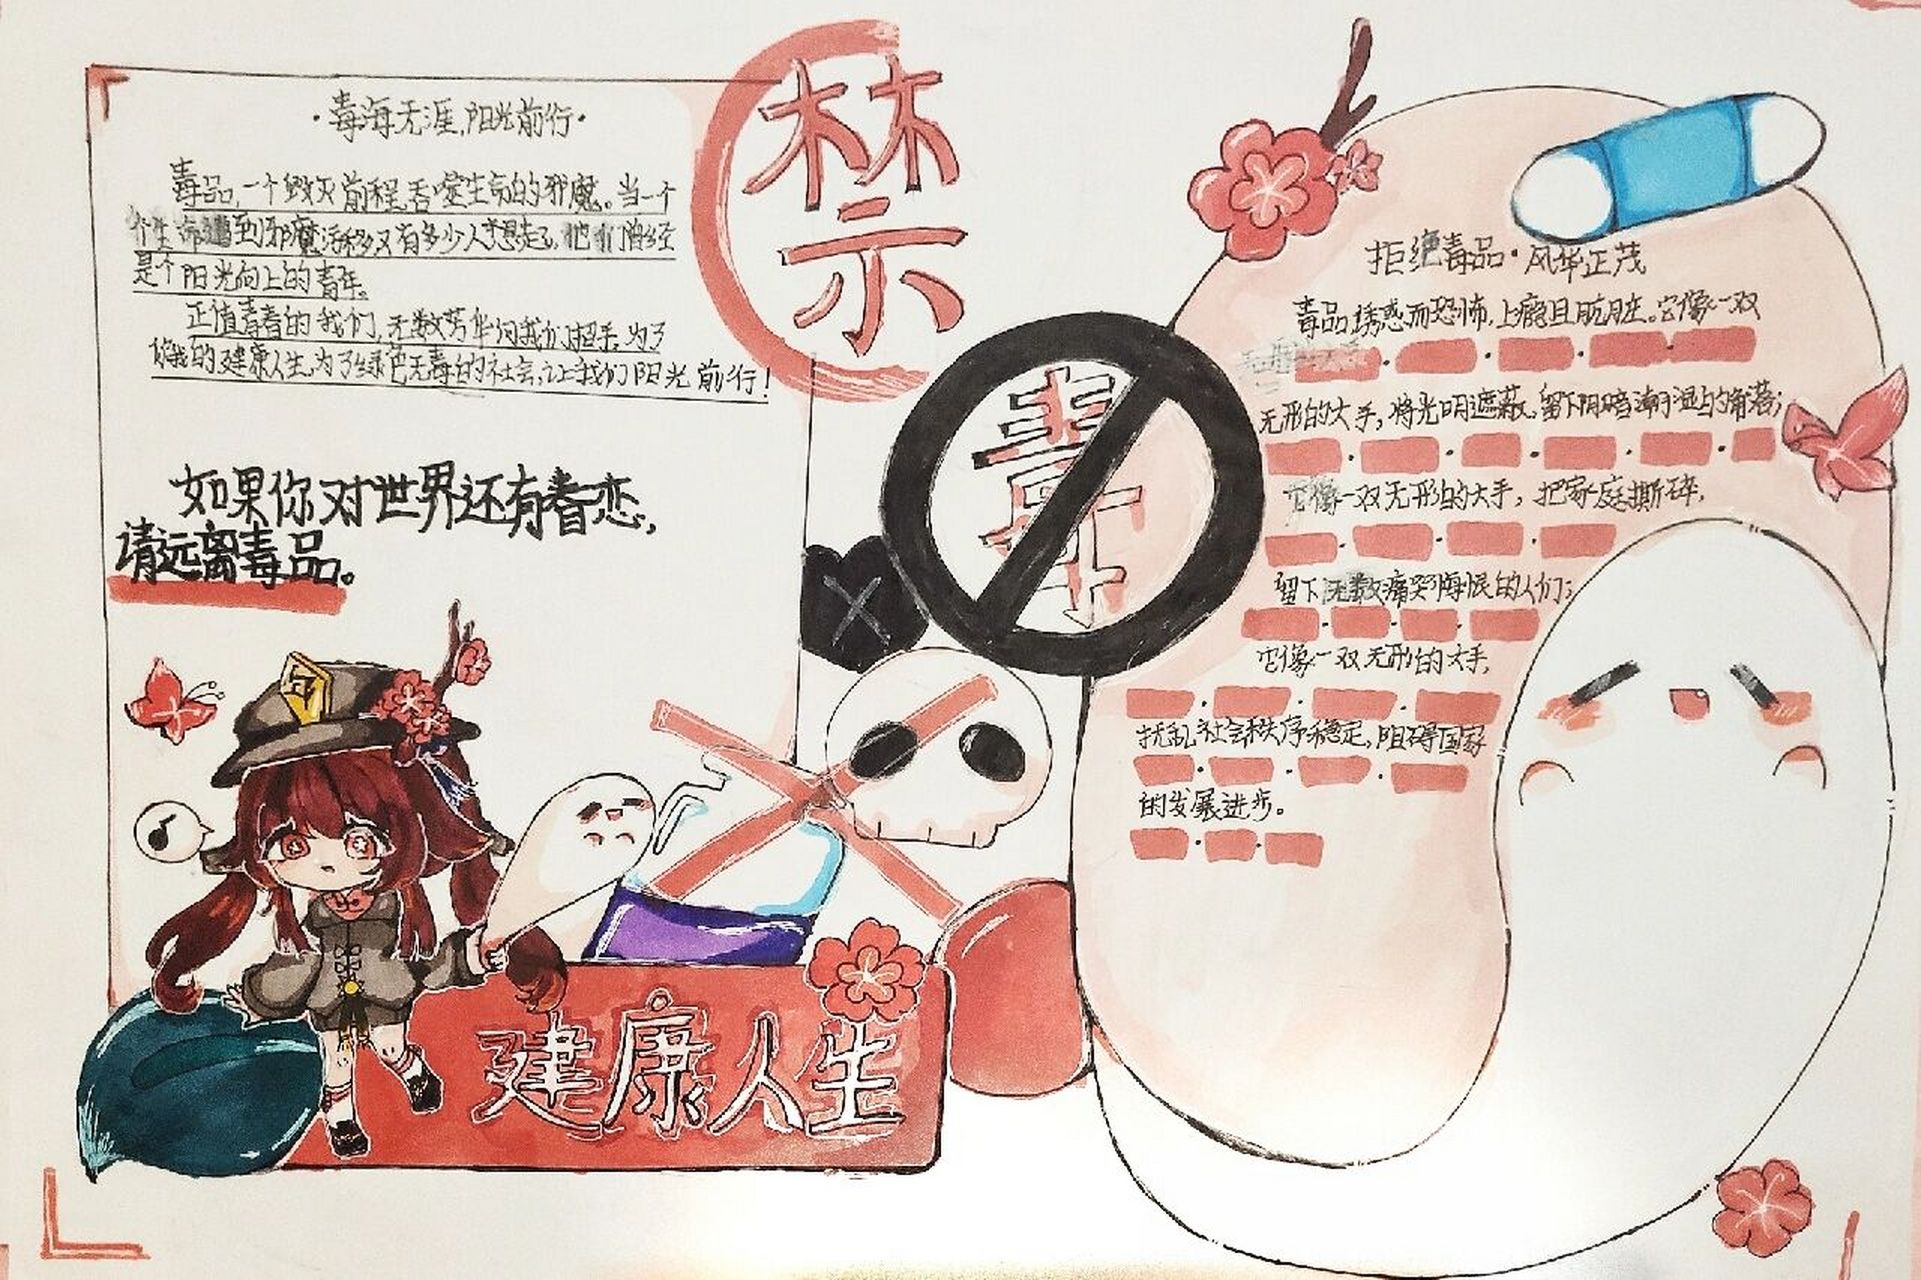 ·毒海无涯,阳光前行·
毒品,一个毁灭前程,吞噬生命的邪魔。当一个
个生命遇到邪魔活移又有多少人想起,他们曾经
是个阳光向上的青年。
正值青春的我们,无数芳华向我们招手,为了
你我的健康人生,为了绿色无毒的社会,让我们阳光前行!
如果你对世界还有眷恋,
请远离毒品。
禁
毒
健康人生
拒绝毒品·风华正茂
毒品,诱惑而恐怖,上瘾且肮脏。它像一双
无形的大手,将光明遮蔽,留下阴暗潮湿的角落;
它像一双无形的大手,把家庭撕碎,
留下无数痛哭悔恨的人们;
它像一双无形的大手,
扰乱社会秩序稳定,阻碍国家
的发展进步。